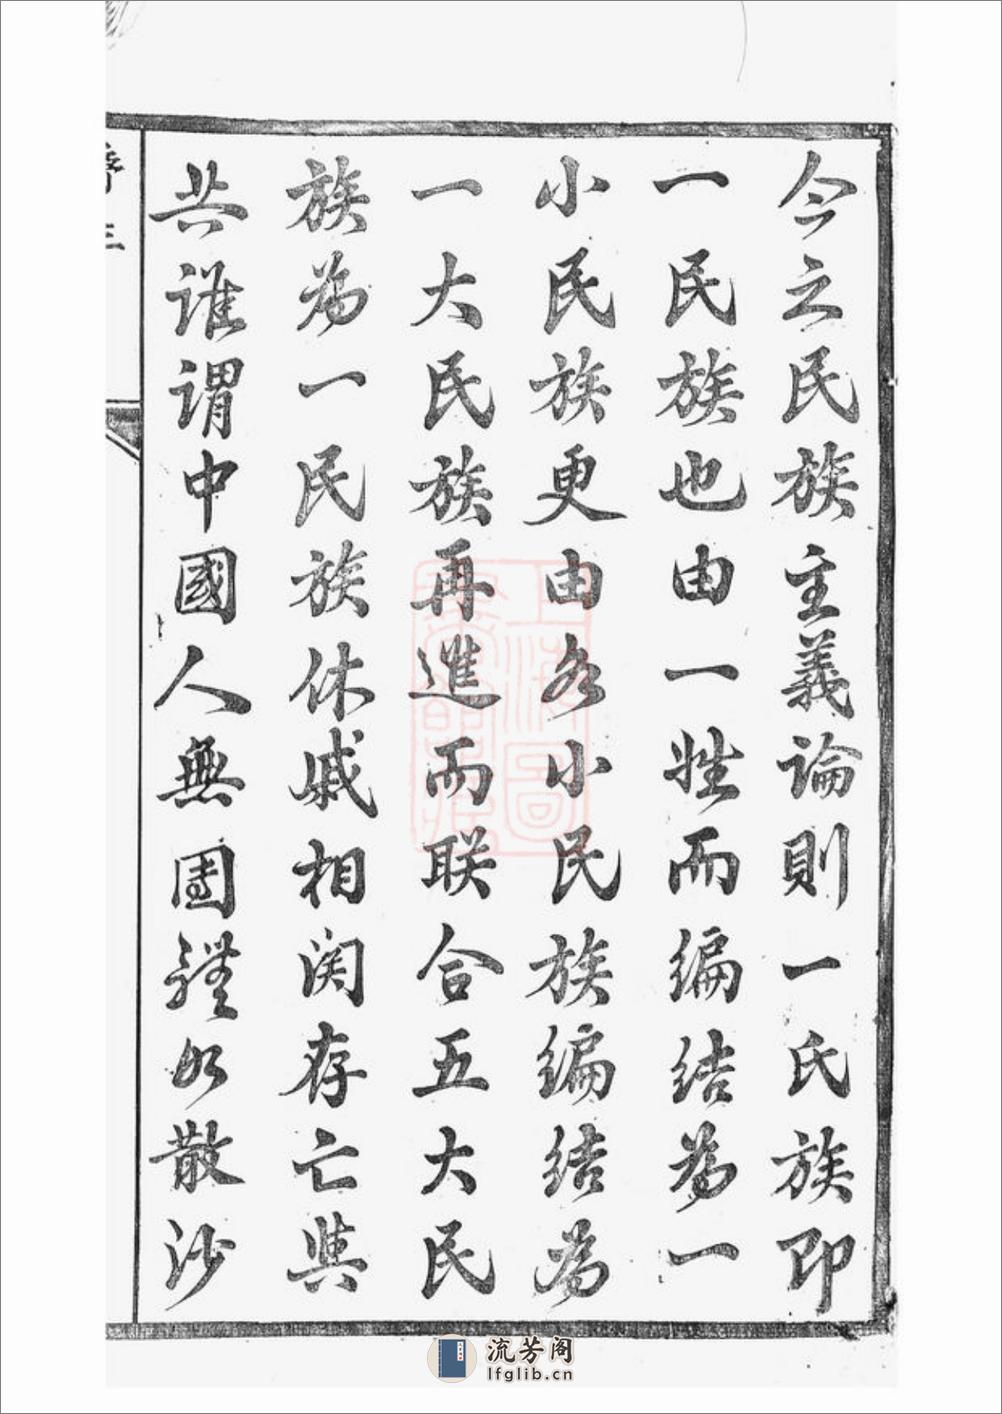 今之民族主義論則一氏族即
一民族也由一姓而編結為一
小民族更由各小民族編結為
一大民族再進而联合五大民
族為一民族休戚相関存亡與
共誰謂中國人無團體如散沙
上海圖
書館藏
流芳阁
lfglib.cn